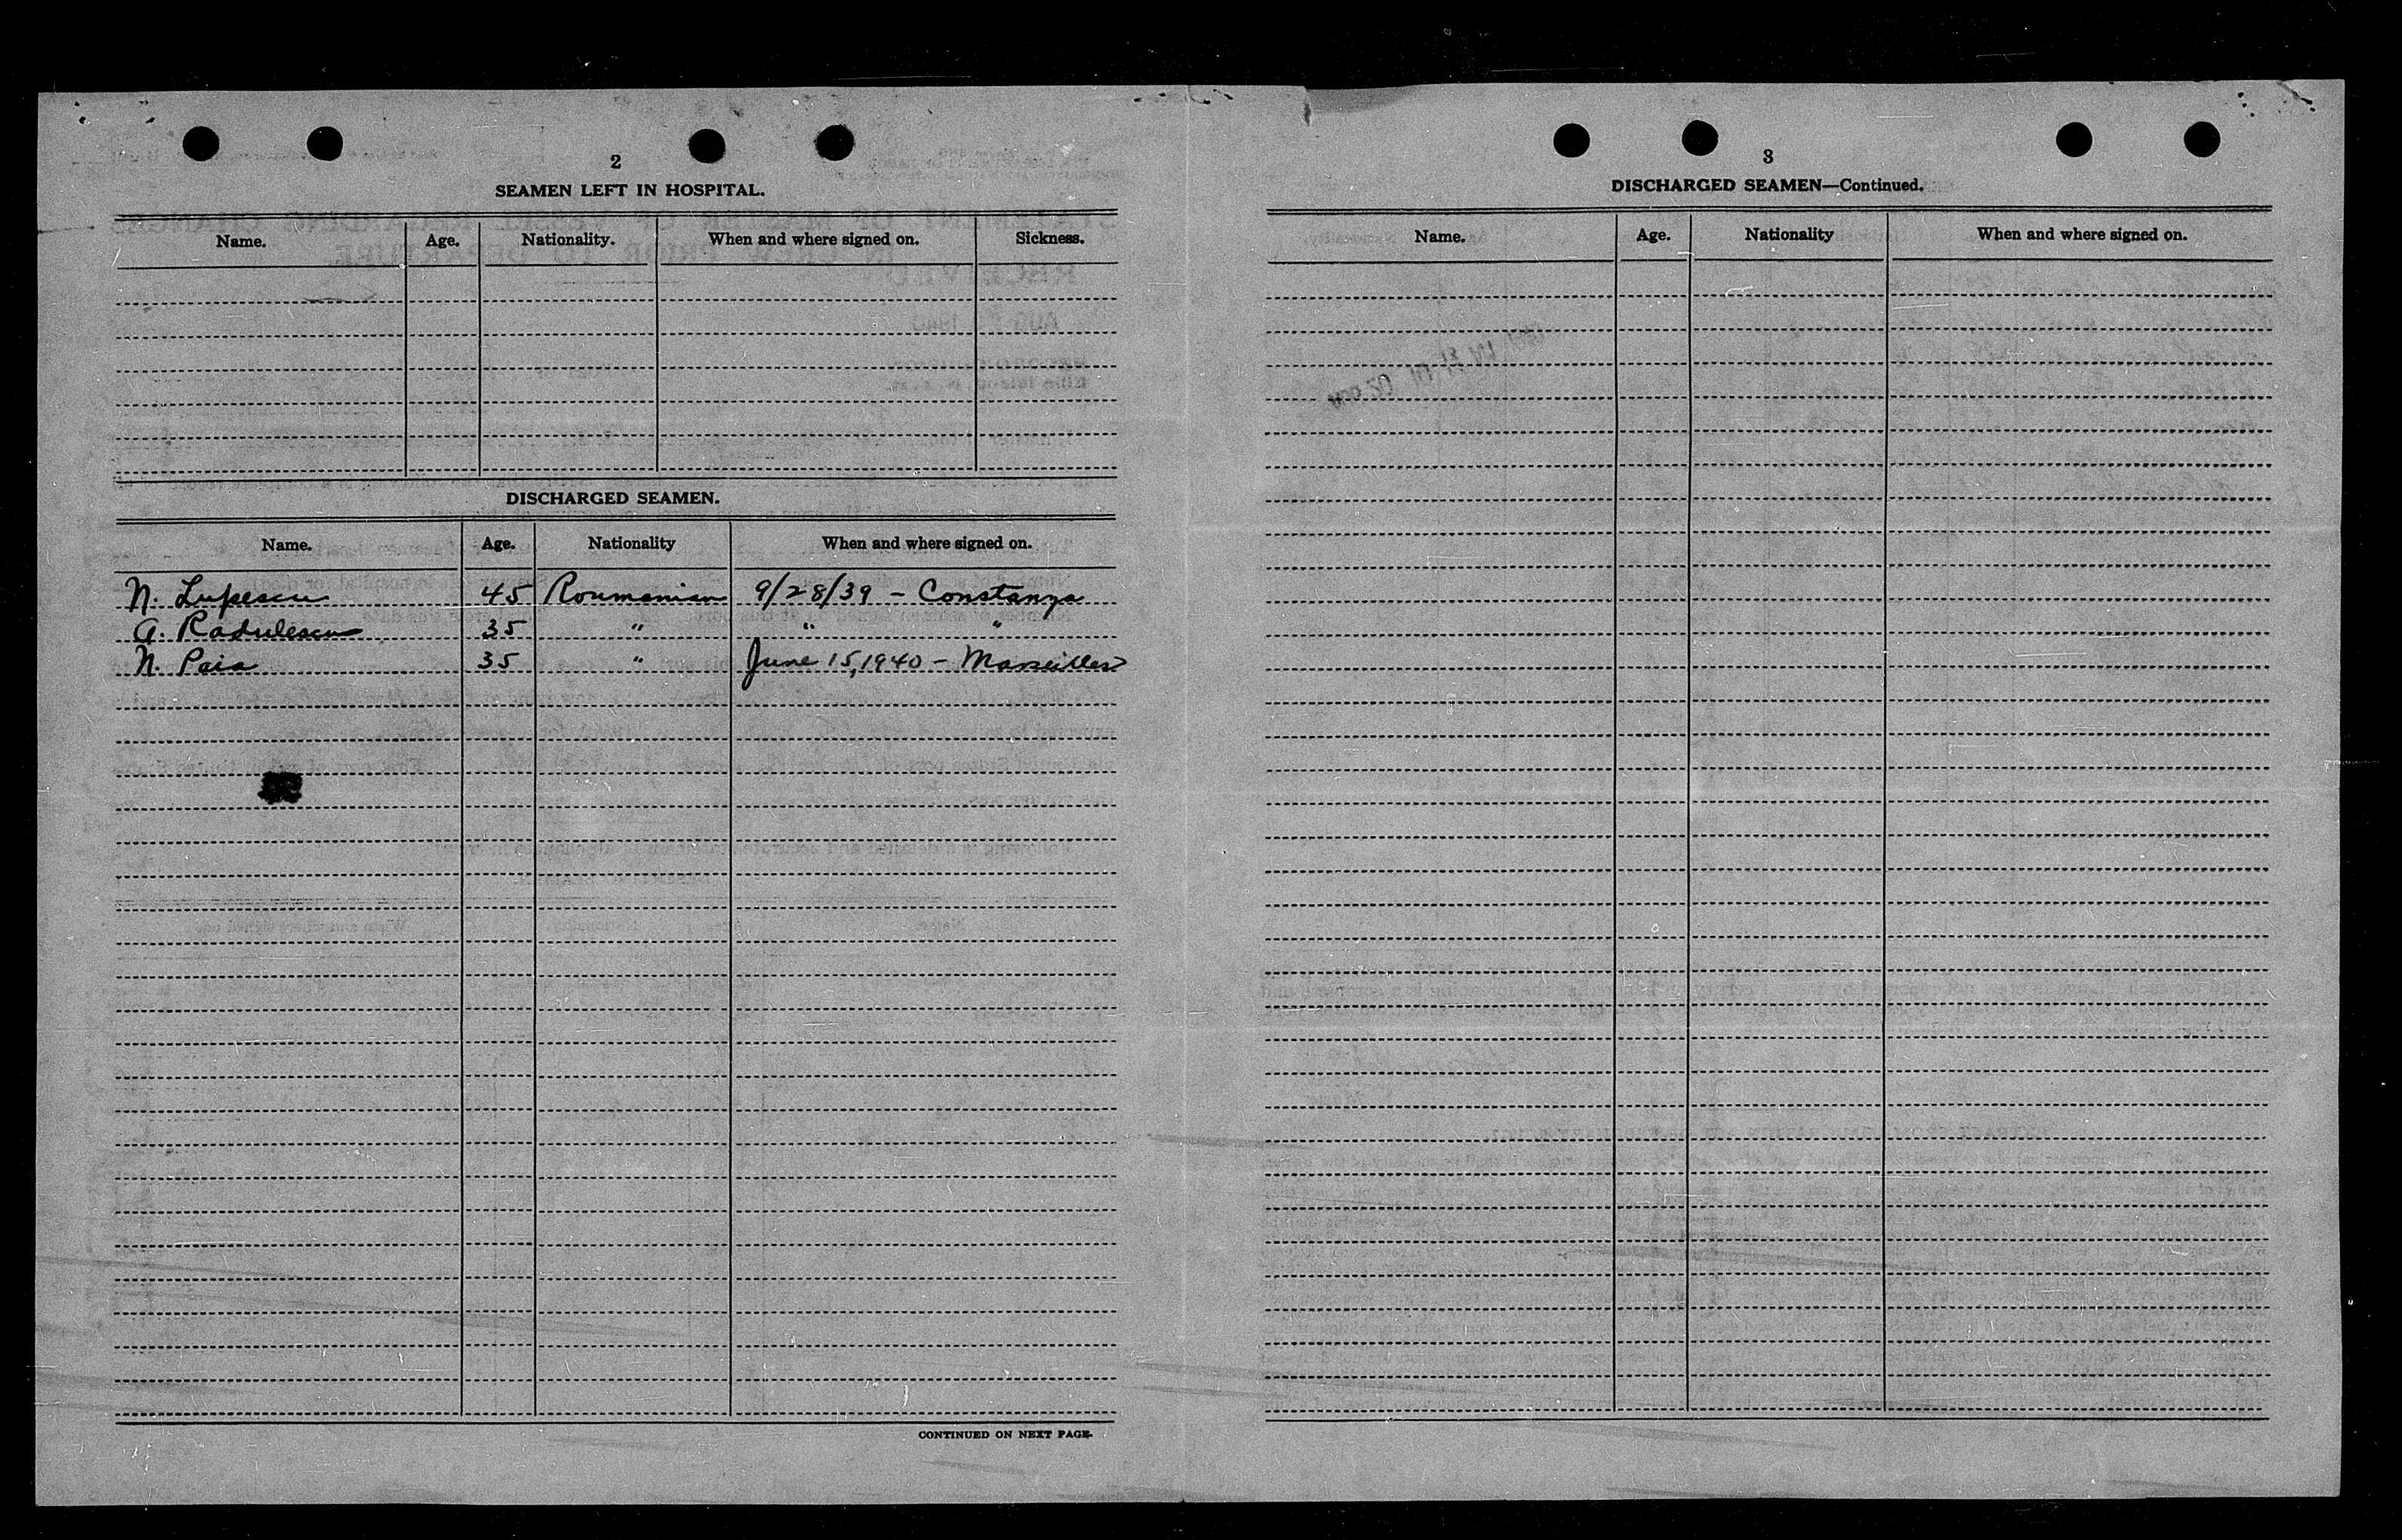 2
SEAMEN LEFT IN HOSPITAL.
Name. Age. Nationality. When and where signed on. Sickness.
DISCHARGED SEAMEN.
Name. Age. Nationality When and where signed on.
N. Lupescu 45 Roumanian 9/28/39 - Constanza
G. Radulescu 35 " " "
N. Paia 35 " June 15, 1940 - Marseilles
CONTINUED ON NEXT PAGE.
3
DISCHARGED SEAMEN—Continued.
Name. Age. Nationality When and where signed on.